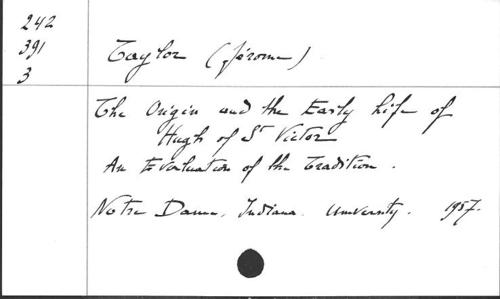 242
391
3
Taylor (Jérome)
The Origin and the Early Life of
Hugh of St Victor
An Evaluation of the Tradition.
Notre Dame, Indiana. University. 1957.